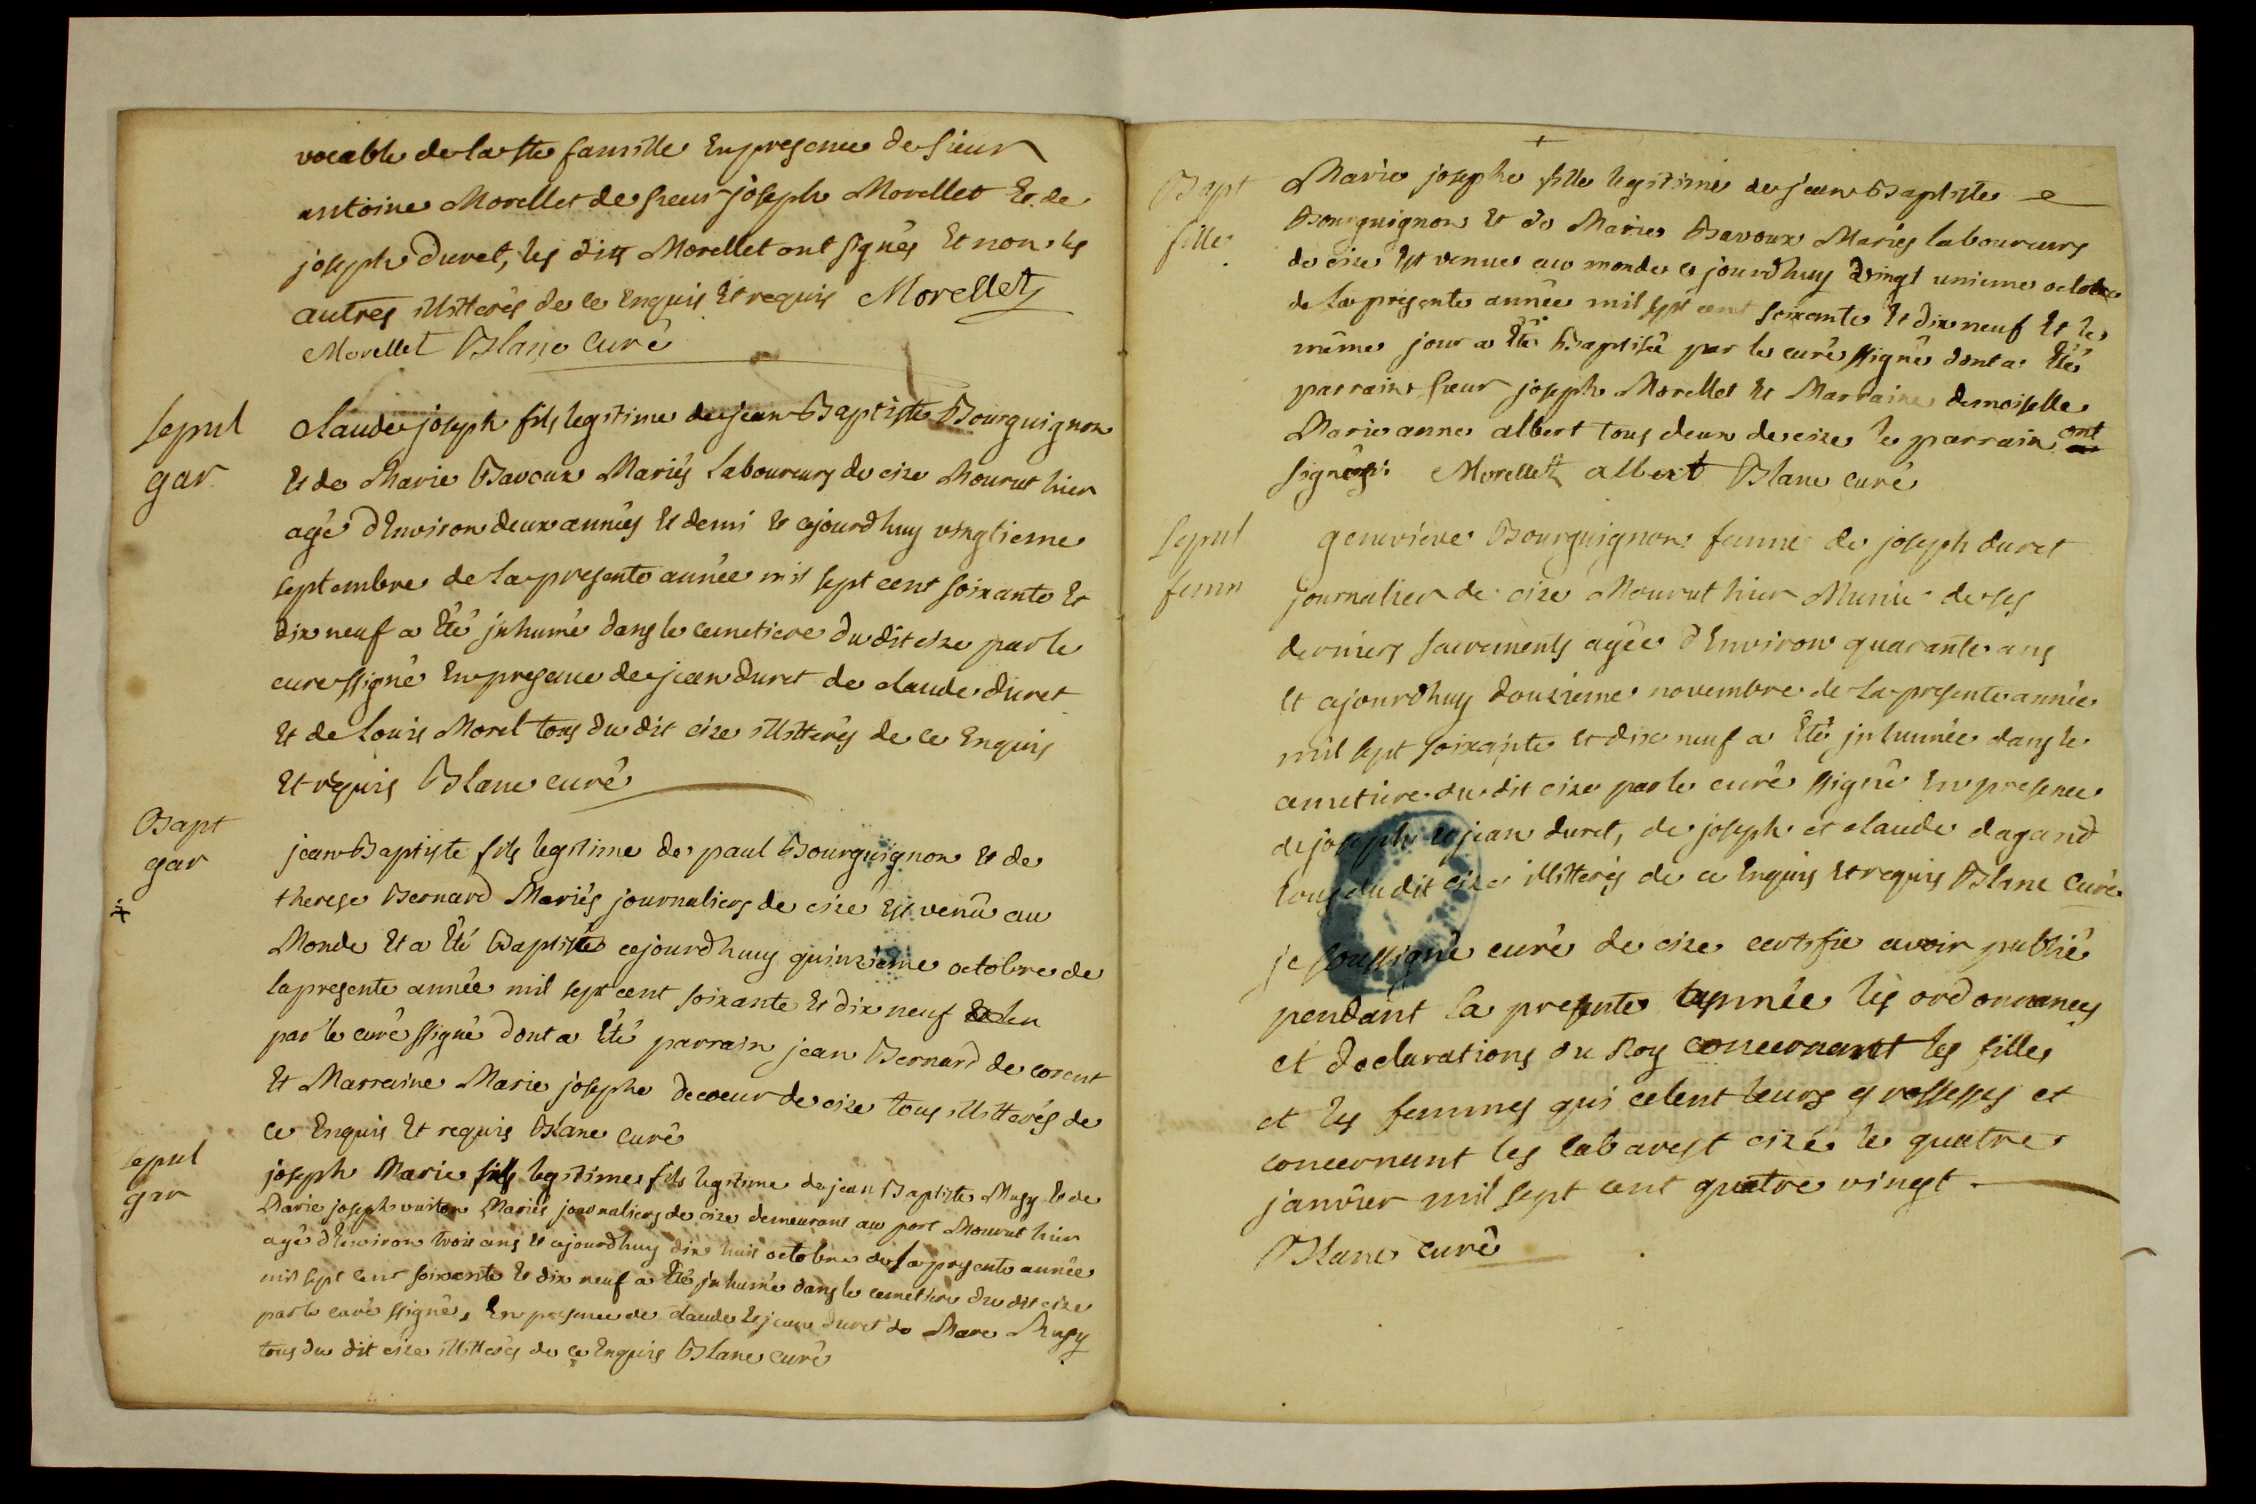 vocable de la ste famille En presence de sieur
antoine Morellet de sieur joseph Morellet Et de
joseph duret, les dits Morellet ont signés Et non les
autres illitterés de ce Enquis Et requis Morellet
Morellet Blanc Curé
sepul
gar
Claude joseph fils legitime de jean Baptiste Bourguignon
Et de Marie Bavoux Mariés Laboureurs de cize Mourut hier
agé d'Environ deux années Et demi Et cejourdhuy vingtieme
septembre de la presente année mil sept cent soixante Et
dix neuf a Eté jnhumé dans le cemetiere du dit cize par le
curé ssigné En presence de jean duret de claude duret
Et de Louis Morel tous du dit cize illitterés de ce Enquis
Et requis Blanc curé
Bapt
gar
jean Baptiste fils legitime de paul Bourguignon Et de
therese Bernard Mariés journaliers de cize Est venû au
Monde Et a Eté Baptisé cejourdhuy quinzieme octobre de
la presente année mil sept cent soixante Et dix neuf
par le curé ssigné dont a Eté parrain jean Bernard de corent
Et Marraine Marie josephe decoeur de cize tous illitterés de
ce Enquis Et requis Blanc curé
sepul
gar
joseph Marie fils legitime fils legitime de jean Baptiste Musy Et de
Marie joseph vuiton Mariés journaliers de cize demeurant au port Mourut hier
agé d'Environ trois ans Et cejourdhuy dix huit octobre de la presente année
mil sept cent soixante Et dix neuf a Eté jnhumé dans le cemetiere du dit cize
par le curé ssigné, En presence de claude Et jean duret de Marc Musy
tous du dit cize illitterés de ce Enquis Blanc curé
Bapt
fille
Marie josephe fille legitime de jean Baptiste
Bourguignon Et de Marie Bavoux Mariés laboureurs
de cize Est venue au monde cejourdhuy vingt unieme octobre
de la presente année mil sept cent soixante Et dix neuf Et le
même jour a Eté Baptisée par le curé ssigné dont a Eté
parrain sieur joseph Morellet Et Marraine demoiselle
Marie anne albert tous deux de cize le parrain ont
signés. Morellet albert Blanc curé
Sepul
femm
geneviéve Bourguignon femme de joseph duret
journalier de cize Mourut hier Munie de ses
derniers sacrements agée d'Environ quarante ans
Et cejourdhuy douzieme novembre de la presente année
mil sept soixante et dix neuf a Eté jnhumée dans le
cemetiere du dit cize par le curé ssigné En presence
de joseph Et jean duret, de joseph et claude dagand
tous du dit cize illitterés de ce Enquis Et requis Blanc Curé
je soussigné curé de cize certifie avoir publié
pendant la presente année les ordonnances
et declarations du Roy concernant les filles
et les femmes qui celent leurs grossesses et
concernant les cabarest cize le quatre
janvier mil sept cent quatre vingt
Blanc curé